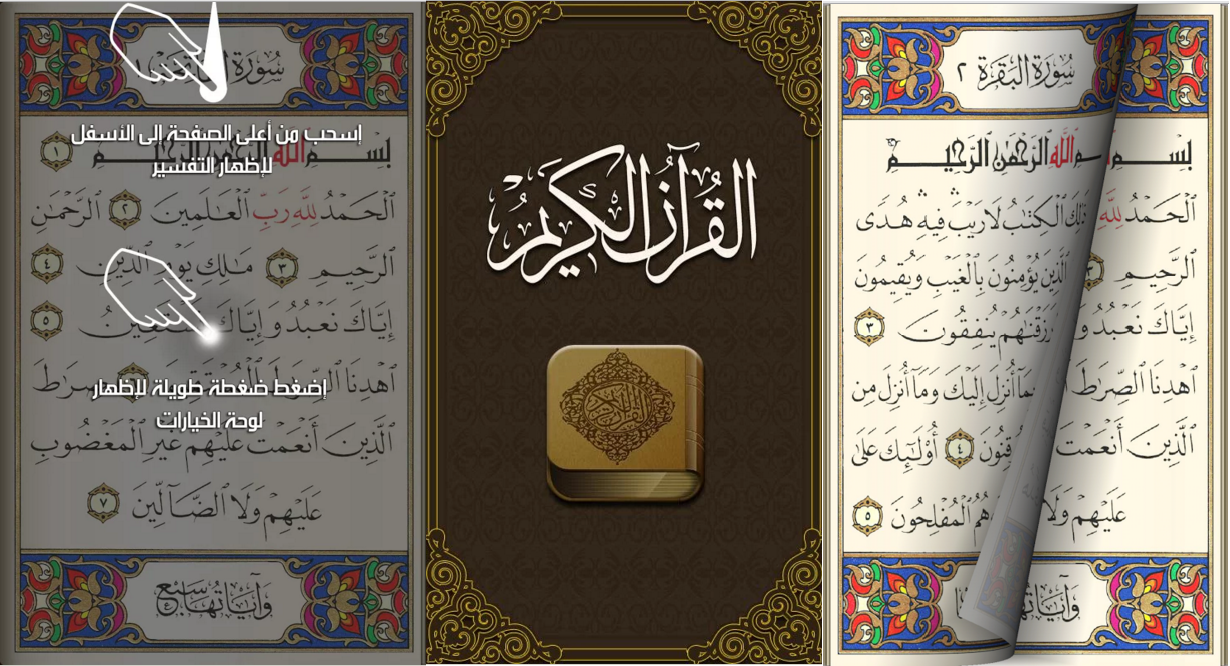 سُورَةُ
إسحب من أعلى الصفحة إلى الأسفل
لإظهار التفسير
بِسْمِ اللَّهِ الرَّحْمَٰنِ الرَّحِيمِ ١
الْحَمْدُ لِلَّهِ رَبِّ الْعَٰلَمِينَ ٢ الرَّحْمَٰنِ
الرَّحِيمِ ٣ مَٰلِكِ يَوْمِ الدِّينِ ٤
إِيَّاكَ نَعْبُدُ وَإِيَّاكَ نَسْتَعِينُ ٥
اهْدِنَا الصِّرَٰطَ الْمُسْتَقِيمَ صِرَٰطَ
إضغط ضغطة طويلة لإظهار
لوحة الخيارات
الَّذِينَ أَنْعَمْتَ عَلَيْهِمْ غَيْرِ الْمَغْضُوبِ
عَلَيْهِمْ وَلَا الضَّآلِّينَ ٧
وَآيَاتُهَا سَبْعٌ
القُرآنُ الكَرِيمُ
سُورَةُ البَقَرَةِ ٢
بِسْمِ اللَّهِ الرَّحْمَٰنِ الرَّحِيمِ
الْحَمْدُ لِلَّهِ
ذَٰلِكَ الْكِتَٰبُ لَا رَيْبَ فِيهِ هُدًى
الرَّحِيمِ ٣
الَّذِينَ يُؤْمِنُونَ بِالْغَيْبِ وَيُقِيمُونَ
إِيَّاكَ نَعْبُدُ وَ
رَزَقْنَٰهُمْ يُنفِقُونَ ٣
اهْدِنَا الصِّرَٰطَ
بِمَا أُنزِلَ إِلَيْكَ وَمَا أُنزِلَ مِن
الَّذِينَ أَنْعَمْتَ
قِنُونَ ٤ أُوْلَٰئِكَ عَلَىٰ
عَلَيْهِمْ وَلَا
هُمُ الْمُفْلِحُونَ ٥
وَآيَاتُهَا